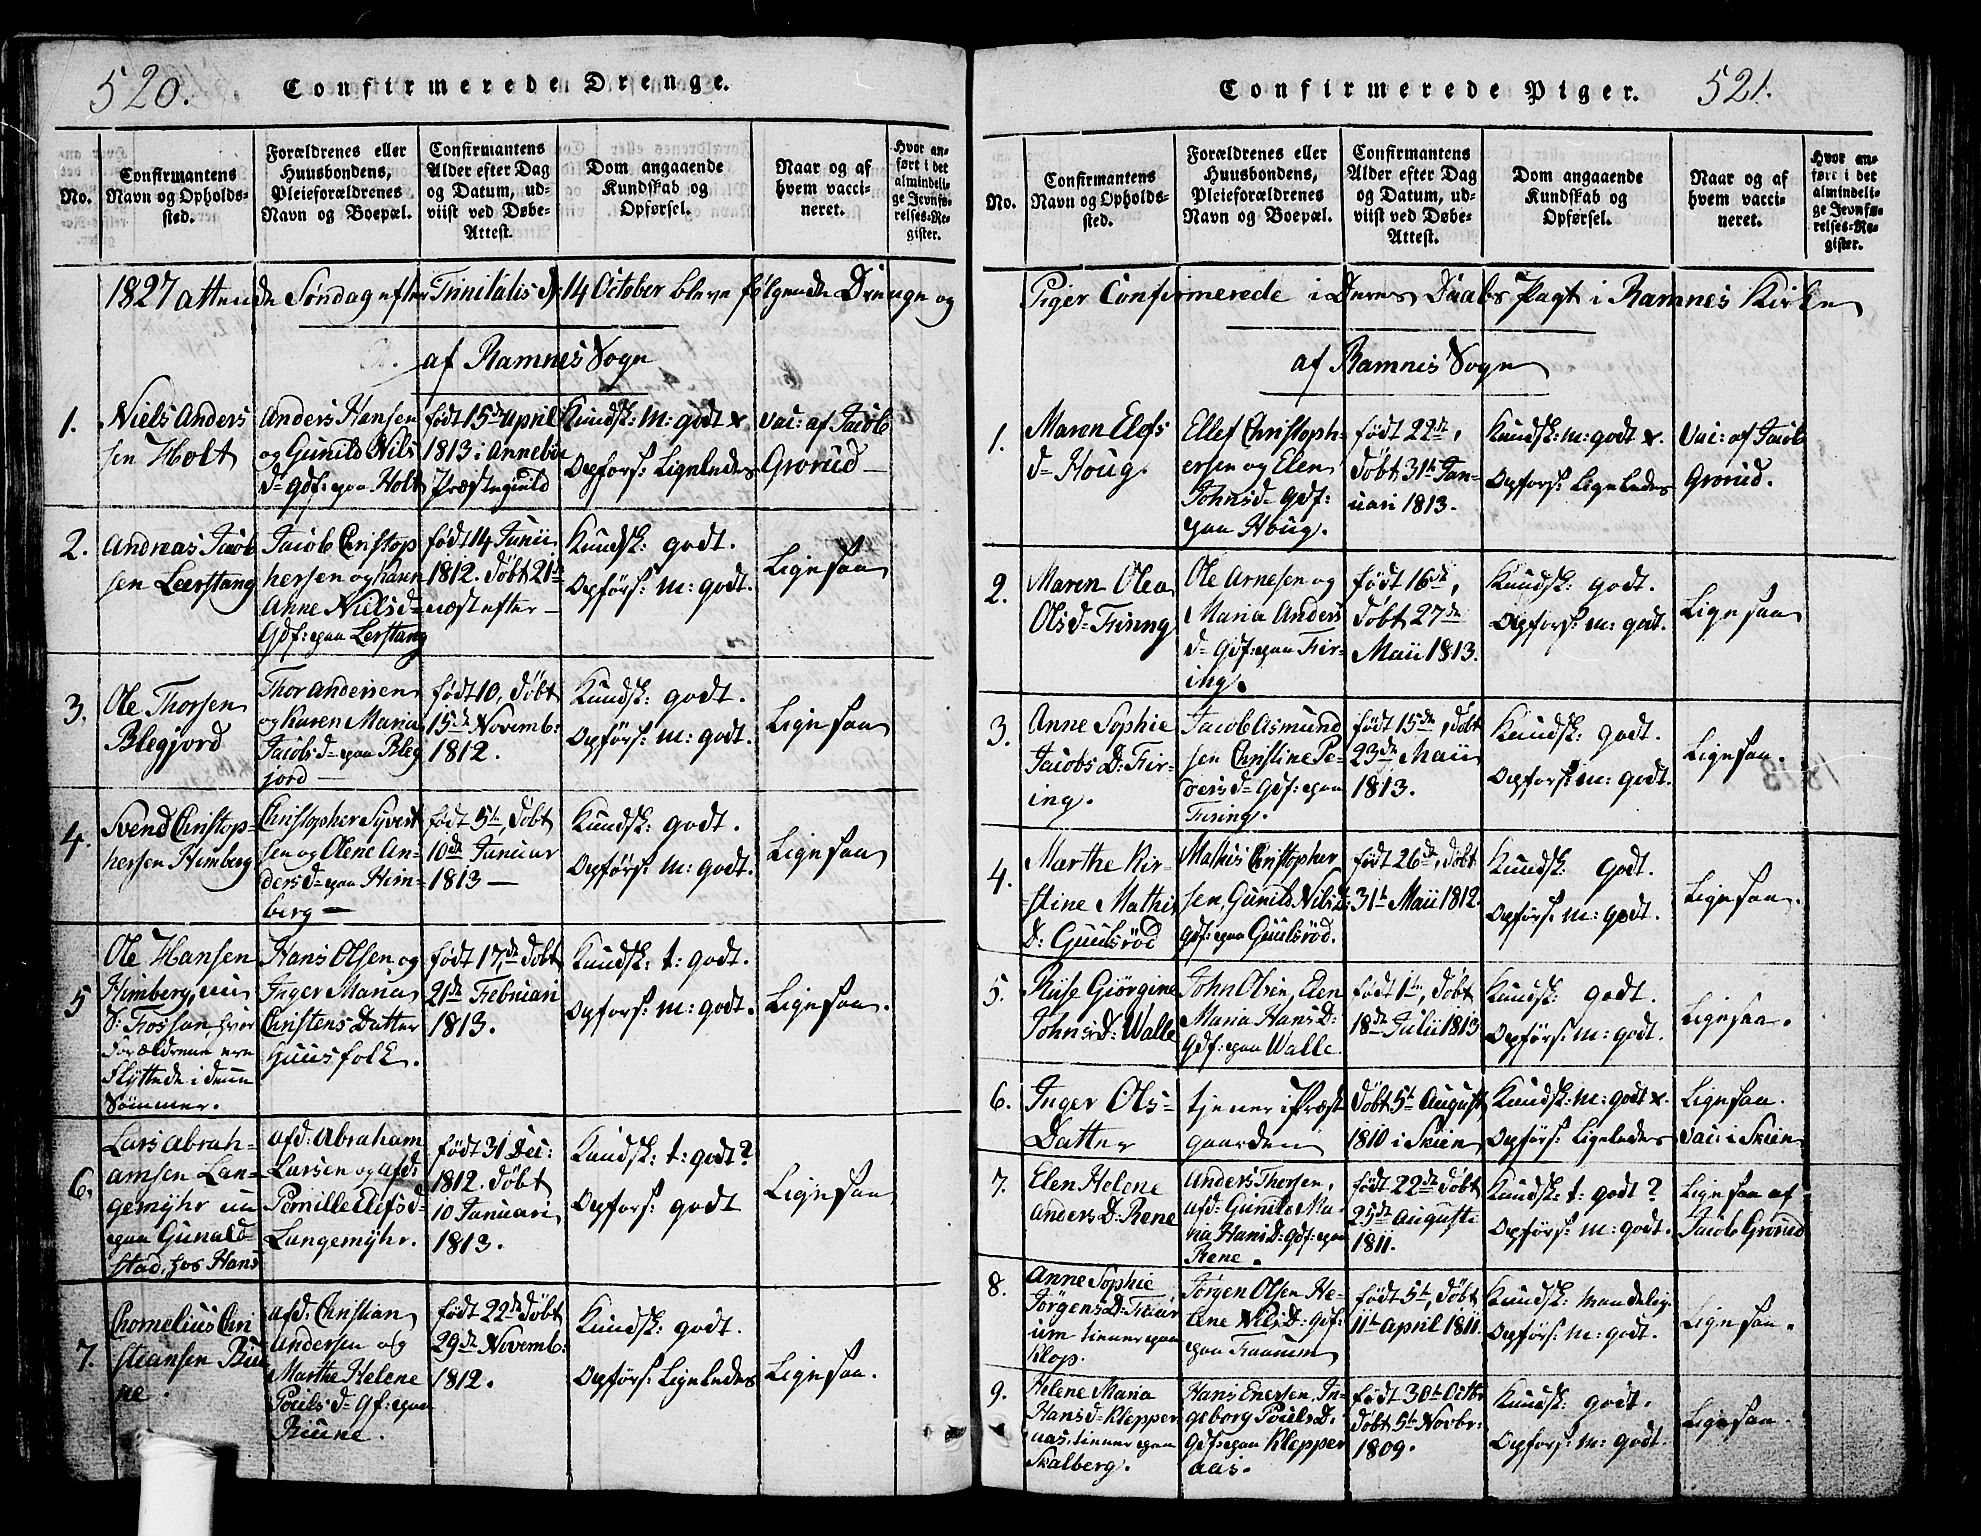 520.
Confirmerede Drenge.
No.
Confirmantens
Navn og Opholds-
sted.
Forældrenes eller
Huusbondens,
Pleieforældrenes
Navn og Boepæl.
Confirmantens
Alder efter Dag
og Datum, ud-
viist ved Døbe-
Attest.
Dom angaaende
Kundskab og
Opførsel.
Naar og af
hvem vacci-
neret.
Hvor an-
ført i det
almindeli-
ge Jevnfø-
relses-Re-
gister.
1827 attende Søndag efter Trinitatis d. 14 October bleve følgende Drenge og
af Ramnes Sogn
1.
Niels Anders
sen Holt
Anders Hansen
og Gunild Nils
D= Gdf: paa Holt
født 15de April
1813 i Annebu
Præstegield
Kundsk: m: godt &
Opførs: Ligeledes
Vac: af Jacob
Grorud
2.
Andreas Jacob
sen Leerstang
Jacob Christop
hersen og Karen
Anne Nielsd=
Gdf: paa Lerstang
født 14 Junii
1812. Døbt 21de
næst efter
Kundsk: godt.
Opførs: m: godt.
Ligesaa
3.
Ole Thorsen
Blegjord
Thor Andersen
og Karen Maria
Jacobsd= paa Bleg
jord
født 10, Døbt
15de Novemb:
1812.
Kundsk: godt.
Opførs: m: godt.
Ligesaa
4.
Svend Christop-
hersen Himberg
Christopher Syvert
sen og Olene An-
dersd= paa Him-
berg
født 5te, Døbt
10de Januar
1813
Kundsk: godt.
Opførs: m: godt.
Ligesaa
5
Ole Hansen
Himberg, nu
Fossan hvor
Forældrene ere
Flyttede i denne
Sommer.
Hans Olsen og
Inger Maria
Christens Datter
Huusfolk.
født 17,de Døbt
21de Februari
1813.
Kundsk: t: godt.
Opførs: m: godt.
Ligesaa.
6.
Lars Abrah-
amsen Lan-
gemyhr nu
paa Gunald-
stad, hos Hans
afd: Abraham
Larsen og afd:
Pernille Elefsd=
Langemyhr.
født 31 Dec:
1812. Døbt
10 Januari
1813.
Kundsk: t: godt?
Opførs: godt
Ligesaa
7.
Chornelius Chri
stiansen Riu
ne.
afd: Christian
Andersen og
Marthe Helene
Pouls D= Gf: paa
Riune.
født 22de Døbt
29de Novemb:
1812.
Kundsk: godt.
Opførs: Ligeledes
Ligesaa.
Confirmerede Piger.
521.
No.
Confirmantens
Navn og Opholds-
sted.
Forældrenes eller
Huusbondens,
Pleieforældrenes
Navn og Boepæl.
Confirmantens
Alder efter Dag
og Datum, ud-
viist ved Døbe-
Attest.
Dom angaaende
Kundskab og
Opførsel.
Naar og af
hvem vacci-
neret.
Hvor an-
ført i det
almindeli-
ge Jevnfø-
relses-Re-
gister.
Piger Confirmerede i Deres Daabs Pagt i Ramnes Kirke
af Ramnes Sogn
1.
Maren Elefs
d= Houg.
Ellef Christoph-
ersen og Elen
Johnsd= Gdf:
paa Houg.
født 22de,
Døbt 31te Jan-
uari 1813.
Kundsk: m: godt &.
Opførs: Ligeledes
Vac: af Jacob
Grorud.
2.
Maren Olea
Olsd= Firing
Ole Arnesen og
Maria Anders
d= Gdf: paa Fir-
ing.
født 16de,
Døbt 27de
Maii 1813.
Kundsk: godt.
Opførs: m: godt.
Ligesaa
3.
Anne Sophie
Jacobs D: Fir-
ing.
Jacob Asmund
sen Christine Pe-
dersd= Gdf: paa
Firing.
født 15de, døbt
23de Maii
1813.
Kundsk: godt.
Opførs: m: godt.
Ligesaa.
4.
Marthe Kir-
stine Mathis
D: Guulsröd
Mathis Christopher
sen, Gunild Nils D:
Gdf: paa Guulsröd.
født 26de, Døbt
31te Maii 1812.
Kundsk: godt.
Opførs: m: godt.
Ligesaa.
5.
Giörgine
Johns D: Walle
John Olsen, Elen
Maria Hans D:
Gdf: paa Walle
født 1te, Døbt
18de Julii 1813
Kundsk: godt.
Opførs: m: godt.
Ligesaa.
6.
Inger Ols-
Datter
tjener i Præst
gaarden
Døbt 5te August
1810 i Skien
Kundsk: m: godt &.
Opførs: Ligeledes
Ligesaa.
Vac: i Skien
7.
Elen Helene
Anders D: Rene
Anders Thorsen,
afd: Gunild Ma-
ria Hans D: Gdf: paa
Rene.
født 22de Døbt
25de Augusti
1811.
Kundsk: t: godt?
Opførs: m: godt.
Ligesaa af
Jacob Grorud
8.
Anne Sophie
Jörgens D: Traar
um tiener paa
Klop.
Jörgen Olsen He-
lene Nils D: Gdf:
paa Traarum
født 5te, Døbt
11te April 1811.
Kundsk: Maadelig.
Opførs: m: godt.
Ligesaa.
9.
Helene Maria
Hansd= Klepper
aas, tiener paa
Skalberg.
Hans Enersen, In-
geborg Pouls D.
Gdf: paa Klepper
aas.
født 30te Octbr
Døbt 5te Novbr:
1809.
Kundsk: godt.
Opførs: m: godt.
Ligesaa.